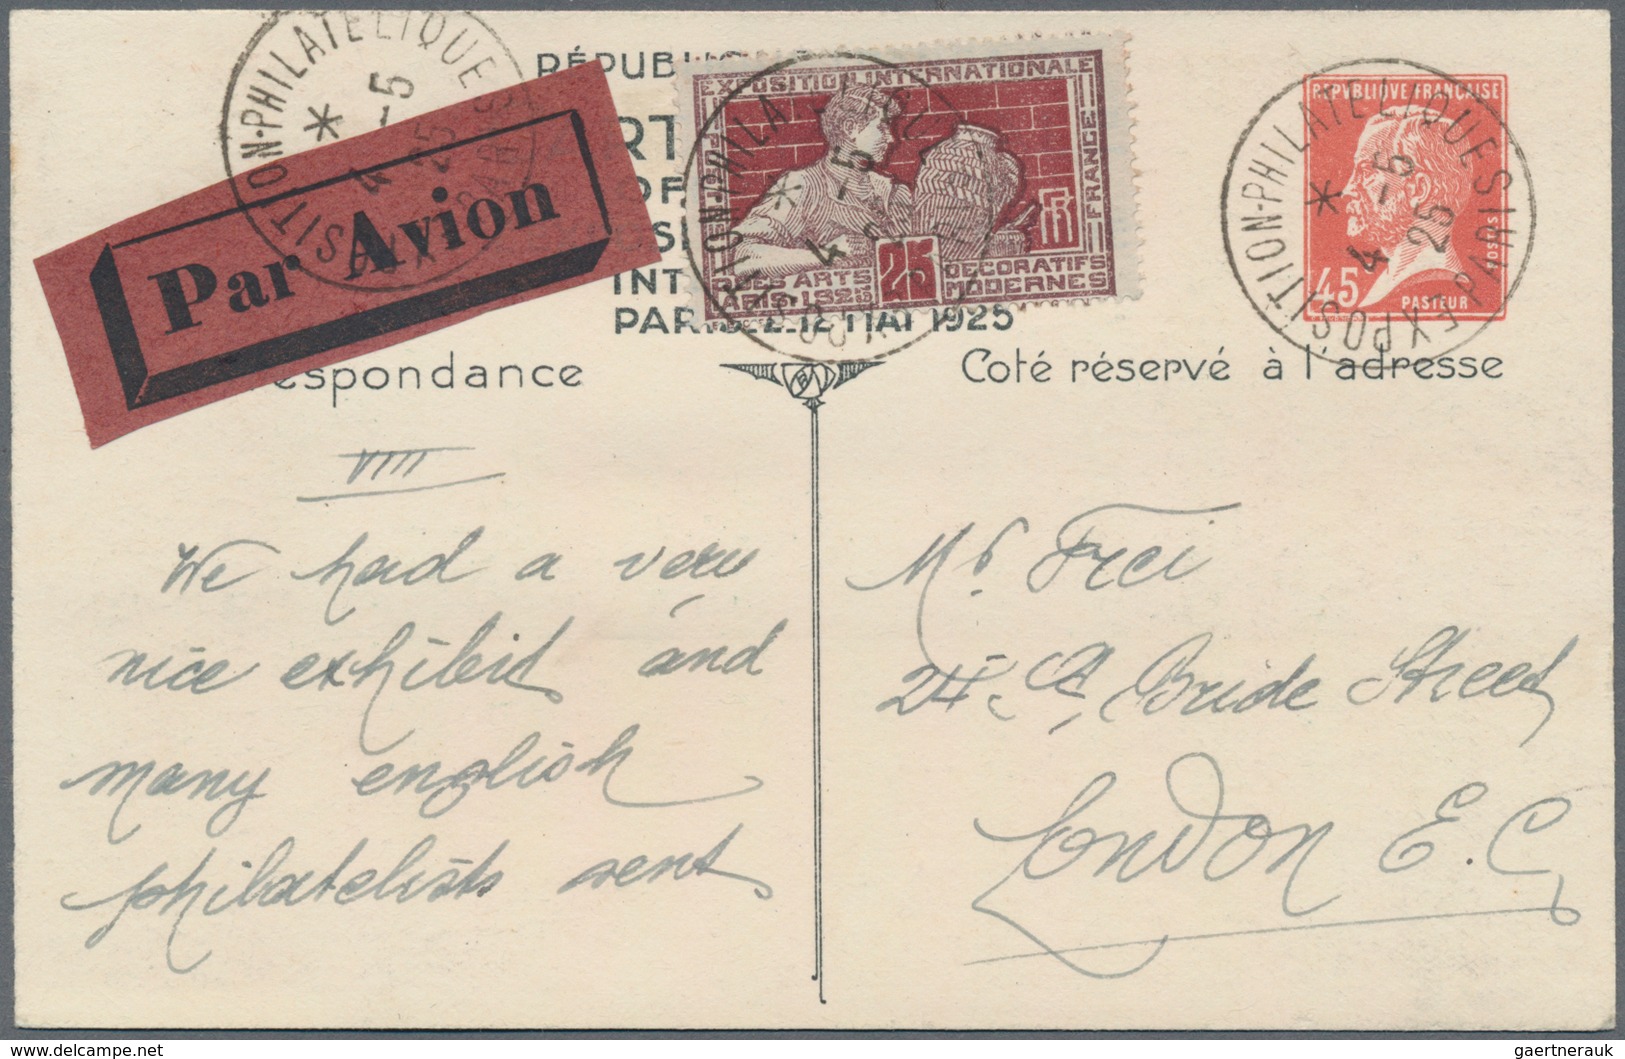 RÉPUBLI
ART
DE
INT
PARIS 2-12 MAI 1925
espondance
Coté réservé à l'adresse
Par Avion
EXPOSITION INTERNATIONALE
FRANCE
RF
25
DES ARTS
DECORATIFS
PARIS·1925
MODERNES
REPVBLIQVE FRANÇAISE
POSTES
45
PASTEUR
EXPOSITION-PHILATELIQUE PARIS
* 4 -5 25
EXPOSITION-PHILATELIQUE PARIS
* 4 -5 25
EXPOSITION-PHILATELIQUE PARIS
* 4 -5 25
VIII
We had a very
nice exhibit and
many english
philatelists sent
Mr Frei
24. St Bride Street
London E.C.
delcampe.net
gaertnerauk